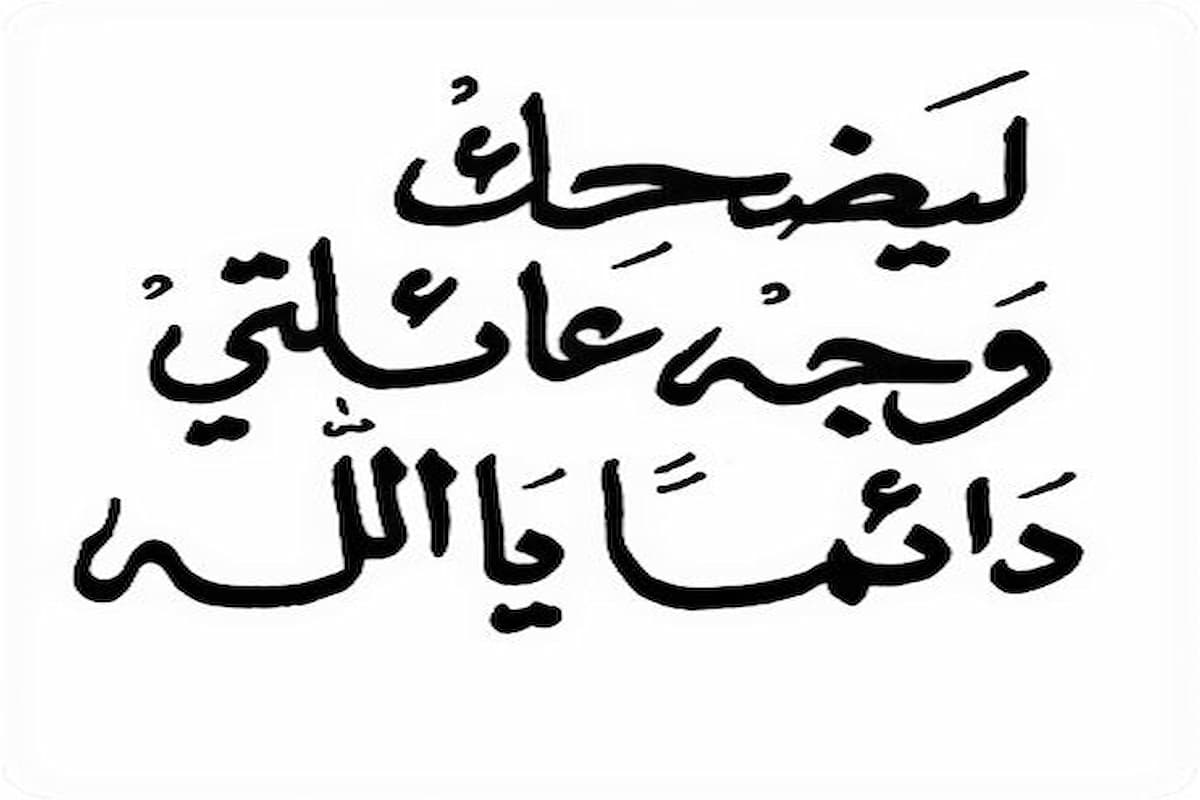 ليَضحكْ
وَجْه عَائلتيْ
دَائمًا يَا اللّه